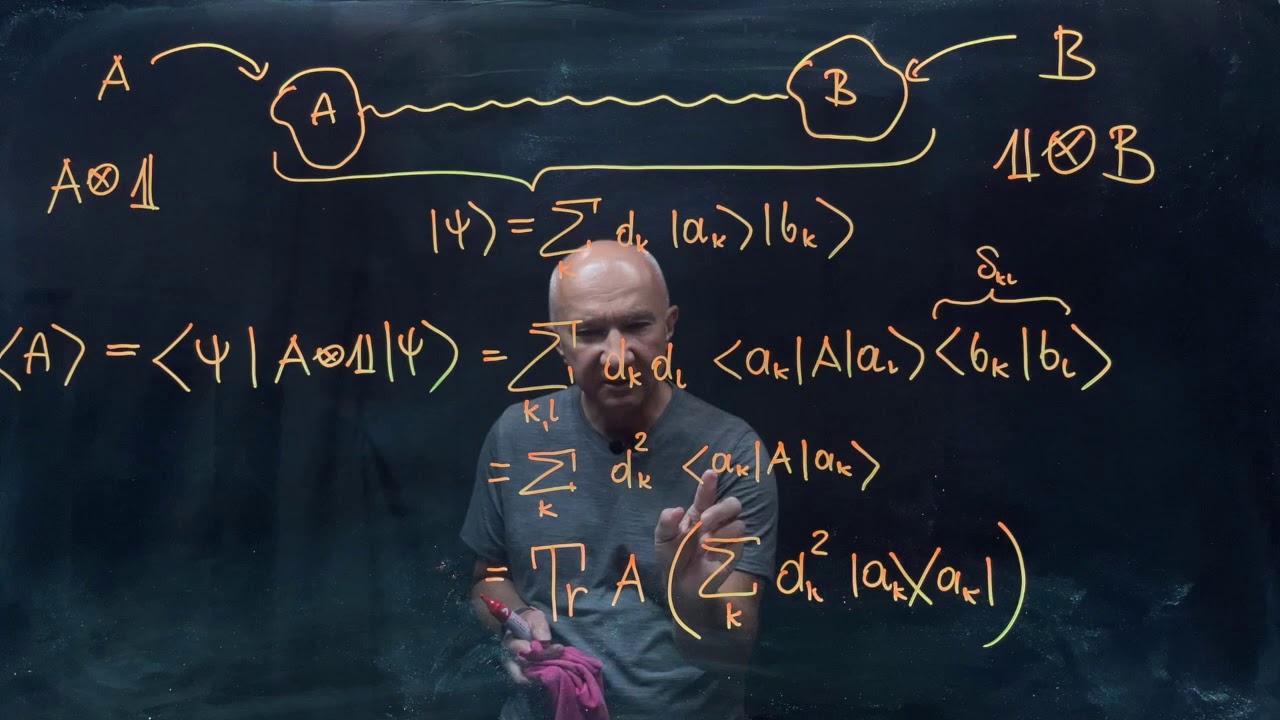 A A B B
A⊗𝟙 𝟙⊗B
|Ψ⟩ = ∑ₖ dₖ |aₖ⟩|bₖ⟩
δₖₗ
⟨A⟩ = ⟨Ψ|A⊗𝟙|Ψ⟩ = ∑ₖ,ₗ dₖdₗ ⟨aₖ|A|aₗ⟩⟨bₖ|bₗ⟩
= ∑ₖ dₖ² ⟨aₖ|A|aₖ⟩
= Tr A (∑ₖ dₖ² |aₖ⟩⟨aₖ|)